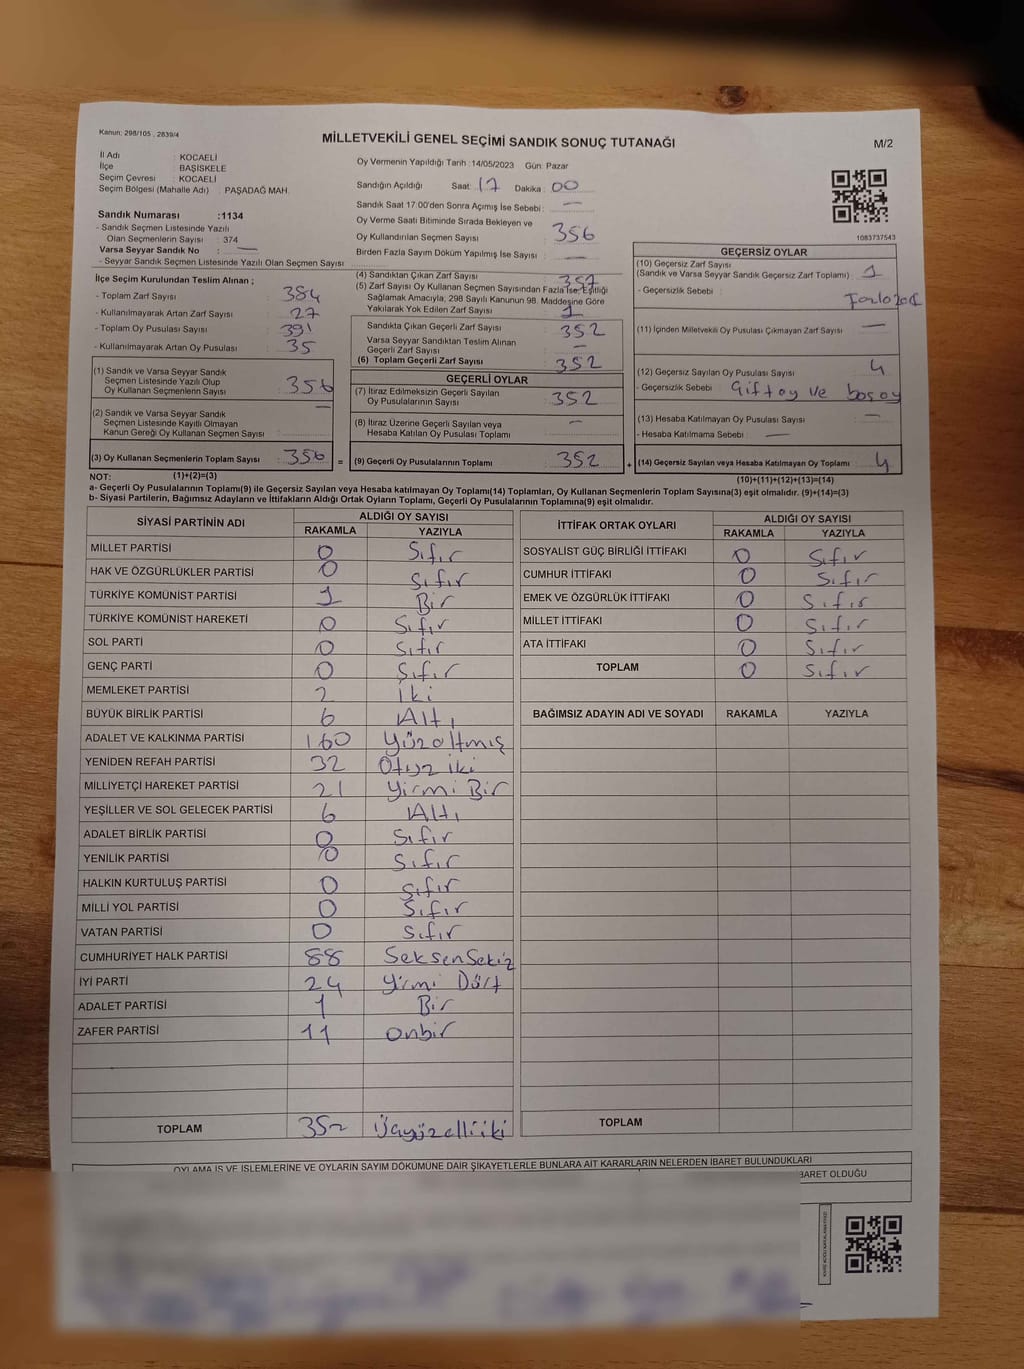 Kanun: 298/105 , 2839/4
MİLLETVEKİLİ GENEL SEÇİMİ SANDIK SONUÇ TUTANAĞI
M/2
İl Adı : KOCAELİ
İlçe : BAŞİSKELE
Seçim Çevresi : KOCAELİ
Seçim Bölgesi (Mahalle Adı) : PAŞADAĞ MAH.
Sandık Numarası :1134
- Sandık Seçmen Listesinde Yazılı
Olan Seçmenlerin Sayısı : 374
Varsa Seyyar Sandık No : —
- Seyyar Sandık Seçmen Listesinde Yazılı Olan Seçmen Sayısı
Oy Vermenin Yapıldığı Tarih :14/05/2023 Gün: Pazar
Sandığın Açıldığı Saat: 17 Dakika : 00
Sandık Saat 17:00'den Sonra Açımış İse Sebebi : —
Oy Verme Saati Bitiminde Sırada Bekleyen ve
Oy Kullandırılan Seçmen Sayısı : 356
Birden Fazla Sayım Döküm Yapılmış İse Sayısı : —
1083737543
İlçe Seçim Kurulundan Teslim Alınan ;
- Toplam Zarf Sayısı : 384
- Kullanılmayarak Artan Zarf Sayısı : 27
- Toplam Oy Pusulası Sayısı : 391
- Kullanılmayarak Artan Oy Pusulası : 35
(1) Sandık ve Varsa Seyyar Sandık
Seçmen Listesinde Yazılı Olup
Oy Kullanan Seçmenlerin Sayısı : 356
(2) Sandık ve Varsa Seyyar Sandık
Seçmen Listesinde Kayıtlı Olmayan
Kanun Gereği Oy Kullanan Seçmen Sayısı : —
(3) Oy Kullanan Seçmenlerin Toplam Sayısı : 356 =
(4) Sandıktan Çıkan Zarf Sayısı : 357
(5) Zarf Sayısı Oy Kullanan Seçmen Sayısından Fazla İse, Eşitliği
Sağlamak Amacıyla, 298 Sayılı Kanunun 98. Maddesine Göre
Yakılarak Yok Edilen Zarf Sayısı : 1
Sandıkta Çıkan Geçerli Zarf Sayısı : 352
Varsa Seyyar Sandıktan Teslim Alınan
Geçerli Zarf Sayısı : —
(6) Toplam Geçerli Zarf Sayısı : 352
GEÇERLİ OYLAR
(7) İtiraz Edilmeksizin Geçerli Sayılan
Oy Pusulalarının Sayısı : 352
(8) İtiraz Üzerine Geçerli Sayılan veya
Hesaba Katılan Oy Pusulası Toplamı : —
(9) Geçerli Oy Pusulalarının Toplamı : 352 +
GEÇERSİZ OYLAR
(10) Geçersiz Zarf Sayısı
(Sandık ve Varsa Seyyar Sandık Geçersiz Zarf Toplamı) : 1
- Geçersizlik Sebebi :
(11) İçinden Milletvekili Oy Pusulası Çıkmayan Zarf Sayısı : —
(12) Geçersiz Sayılan Oy Pusulası Sayısı : 4
- Geçersizlik Sebebi : Çift oy ve boş oy
(13) Hesaba Katılmayan Oy Pusulası Sayısı : —
- Hesaba Katılmama Sebebi : —
(14) Geçersiz Sayılan veya Hesaba Katılmayan Oy Toplamı : 4
NOT: (1)+(2)=(3)
(10)+(11)+(12)+(13)=(14)
a- Geçerli Oy Pusulalarının Toplamı(9) ile Geçersiz Sayılan veya Hesaba katılmayan Oy Toplamı(14) Toplamları, Oy Kullanan Seçmenlerin Toplam Sayısına(3) eşit olmalıdır. (9)+(14)=(3)
b- Siyasi Partilerin, Bağımsız Adayların ve İttifakların Aldığı Ortak Oyların Toplamı, Geçerli Oy Pusulalarının Toplamına(9) eşit olmalıdır.
SİYASİ PARTİNİN ADI ALDIĞI OY SAYISI
RAKAMLA YAZIYLA
MİLLET PARTİSİ 0 Sıfır
HAK VE ÖZGÜRLÜKLER PARTİSİ 0 Sıfır
TÜRKİYE KOMÜNİST PARTİSİ 1 Bir
TÜRKİYE KOMÜNİST HAREKETİ 0 Sıfır
SOL PARTİ 0 Sıfır
GENÇ PARTİ 0 Sıfır
MEMLEKET PARTİSİ 2 İki
BÜYÜK BİRLİK PARTİSİ 6 Altı
ADALET VE KALKINMA PARTİSİ 160 Yüzaltmış
YENİDEN REFAH PARTİSİ 32 Otuz iki
MİLLİYETÇİ HAREKET PARTİSİ 21 Yirmi Bir
YEŞİLLER VE SOL GELECEK PARTİSİ 6 Altı
ADALET BİRLİK PARTİSİ 0 Sıfır
YENİLİK PARTİSİ 0 Sıfır
HALKIN KURTULUŞ PARTİSİ 0 Sıfır
MİLLİ YOL PARTİSİ 0 Sıfır
VATAN PARTİSİ 0 Sıfır
CUMHURİYET HALK PARTİSİ 88 SeksenSekiz
İYİ PARTİ 24 Yirmi Dört
ADALET PARTİSİ 1 Bir
ZAFER PARTİSİ 11 onbir
TOPLAM 352 Üçyüzelliiki
İTTİFAK ORTAK OYLARI ALDIĞI OY SAYISI
RAKAMLA YAZIYLA
SOSYALİST GÜÇ BİRLİĞİ İTTİFAKI 0 Sıfır
CUMHUR İTTİFAKI 0 Sıfır
EMEK VE ÖZGÜRLÜK İTTİFAKI 0 Sıfır
MİLLET İTTİFAKI 0 Sıfır
ATA İTTİFAKI 0 Sıfır
TOPLAM 0 Sıfır
BAĞIMSIZ ADAYIN ADI VE SOYADI RAKAMLA YAZIYLA
TOPLAM
OYLAMA İŞ VE İŞLEMLERİNE VE OYLARIN SAYIM DÖKÜMÜNE DAİR ŞİKAYETLERLE BUNLARA AİT KARARLARIN NELERDEN İBARET BULUNDUKLARI
BARET OLDUĞU